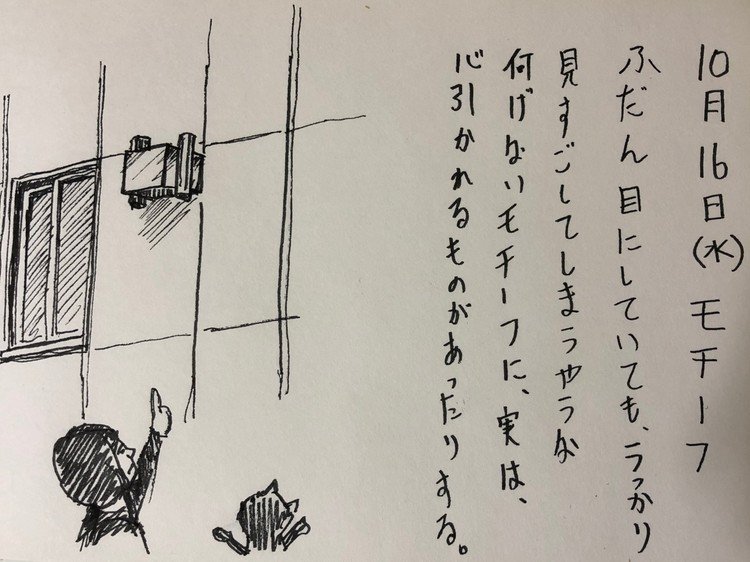 10月16日(水) モチーフ
ふだん目にしていても、うっかり
見すごしてしまうやうな
何げないモチーフに、実は、
心引かれるものがあったりする。